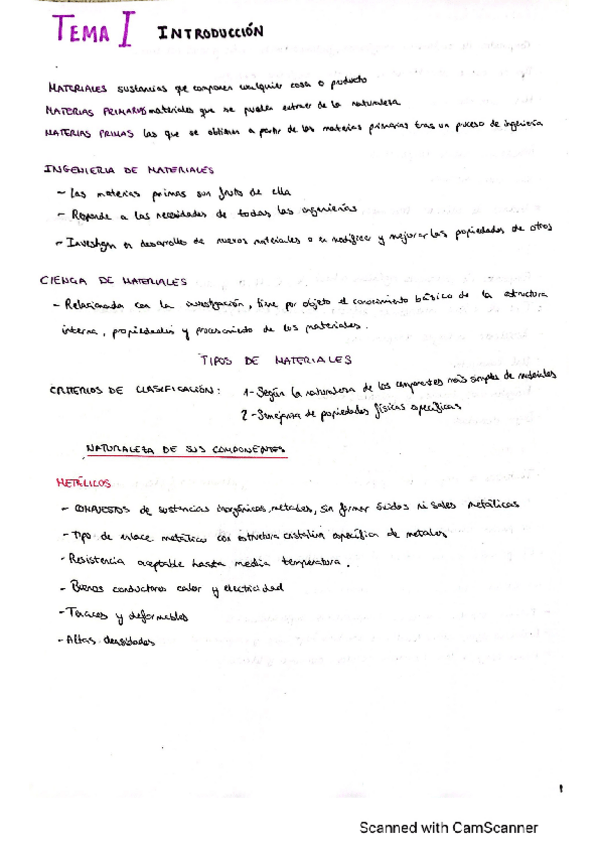 TEMA I INTRODUCCIÓN
MATERIALES sustancias que componen cualquier cosa o producto
MATERIAS PRIMARIAS materiales que se pueden extraer de la naturaleza
MATERIAS PRIMAS las que se obtienen a partir de las materias primarias tras un proceso de ingeniería
INGENIERIA DE MATERIALES
- Las materias primas son fruto de ella
- Responde a las necesidades de todas las ingenierías
- Investigan en desarrollo de nuevos materiales o en modificar y mejorar las propiedades de otros
CIENCIA DE MATERIALES
- Relacionada con la investigación, tiene por objeto el conocimiento básico de la estructura
interna, propiedades y procesamiento de los materiales.
TIPOS DE MATERIALES
CRITERIOS DE CLASIFICACIÓN: 1- Según la naturaleza de los componentes más simples de materiales
2- Semejanza de propiedades físicas específicas
NATURALEZA DE SUS COMPONENTES
METÁLICOS
- COMPUESTOS de sustancias inorgánicas, metales, sin formar óxidos ni sales metálicas
- Tipo de enlace metálico con estructura cristalina específica de metales
- Resistencia aceptable hasta media temperatura.
- Buenos conductores calor y electricidad
- Tenaces y deformables
- Altas densidades
1
Scanned with CamScanner